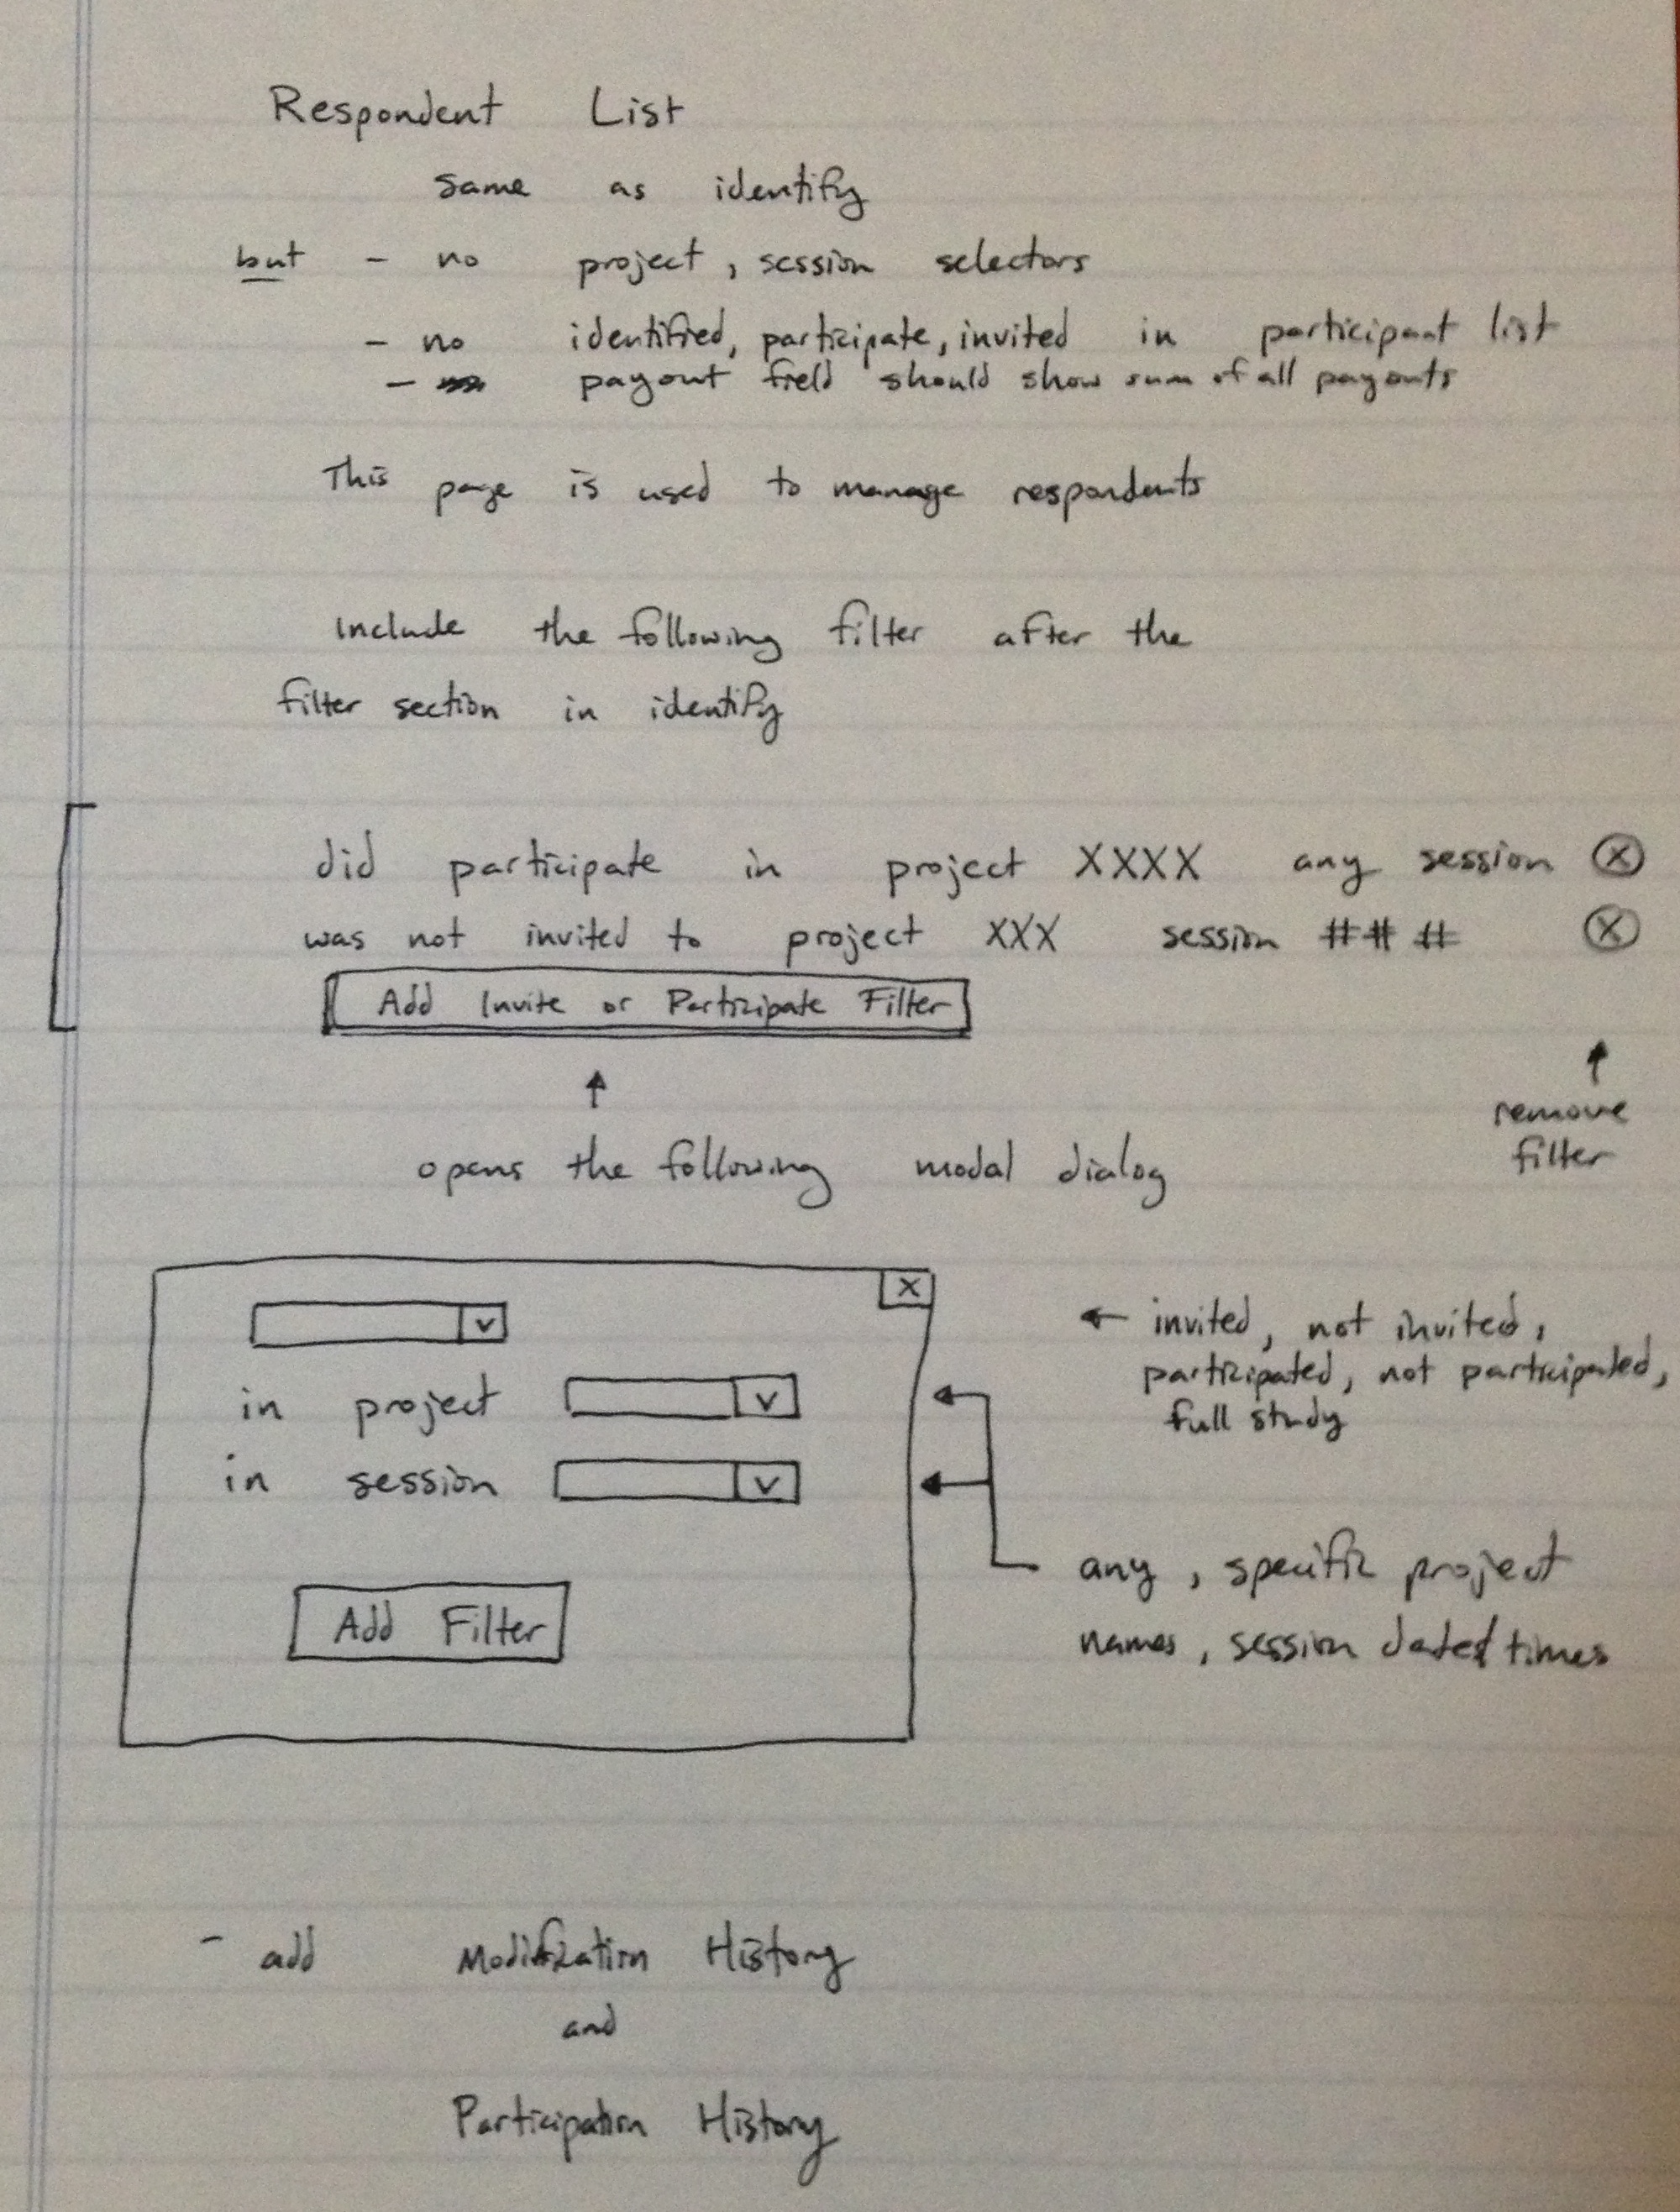 Respondent List
same as identify
but - no project, session selectors
- no identified, participate, invited in participant list
- payout field should show sum of all payouts
This page is used to manage respondents
Include the following filter after the
filter section in identify
did participate in project XXXX any session X
was not invited to project XXX session ### X
Add Invite or Participate Filter
↑
↑
remove
filter
opens the following modal dialog
X
v
← invited, not invited,
participated, not participated,
full study
in project v
in session v
any, specific project
names, session dated times
Add Filter
- add Modification History
and
Participation History